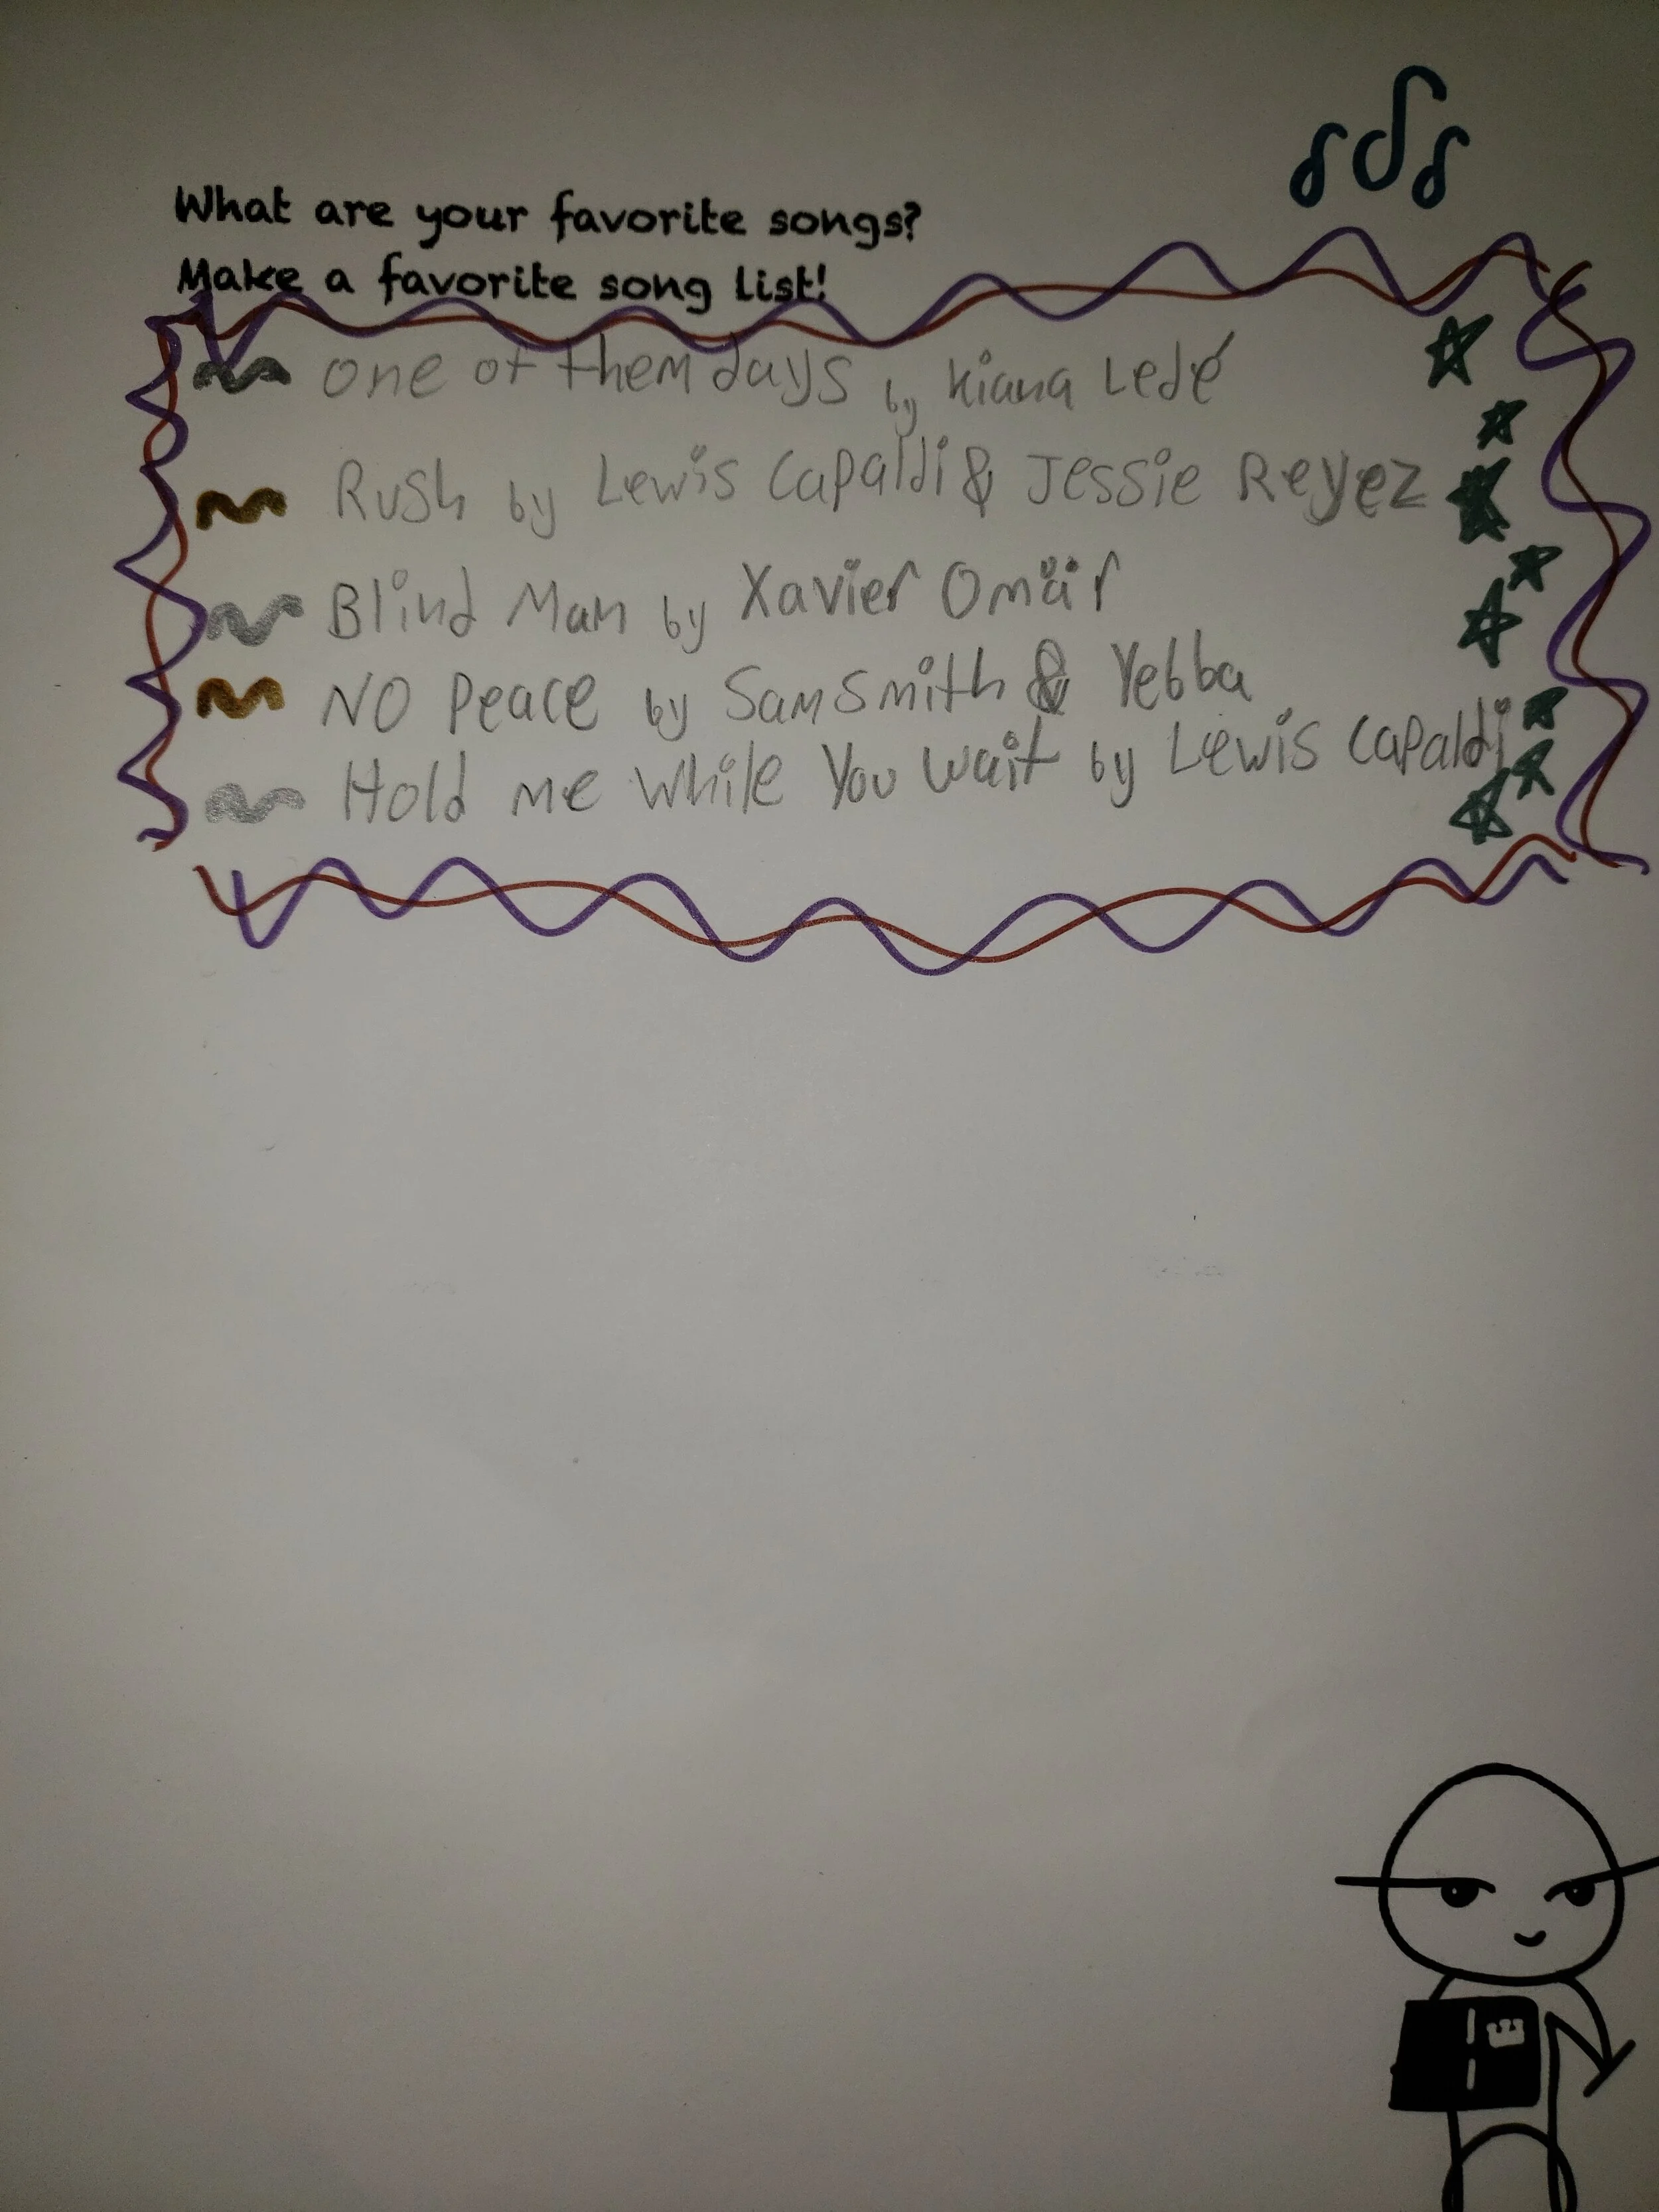 What are your favorite songs?
Make a favorite song list!
one of them days by Kiana Ledé
Rush by Lewis Capaldi & Jessie Reyez
Blind Man by Xavier Omär
NO Peace by Sam Smith & Yebba
Hold me While You Wait by Lewis Capaldi